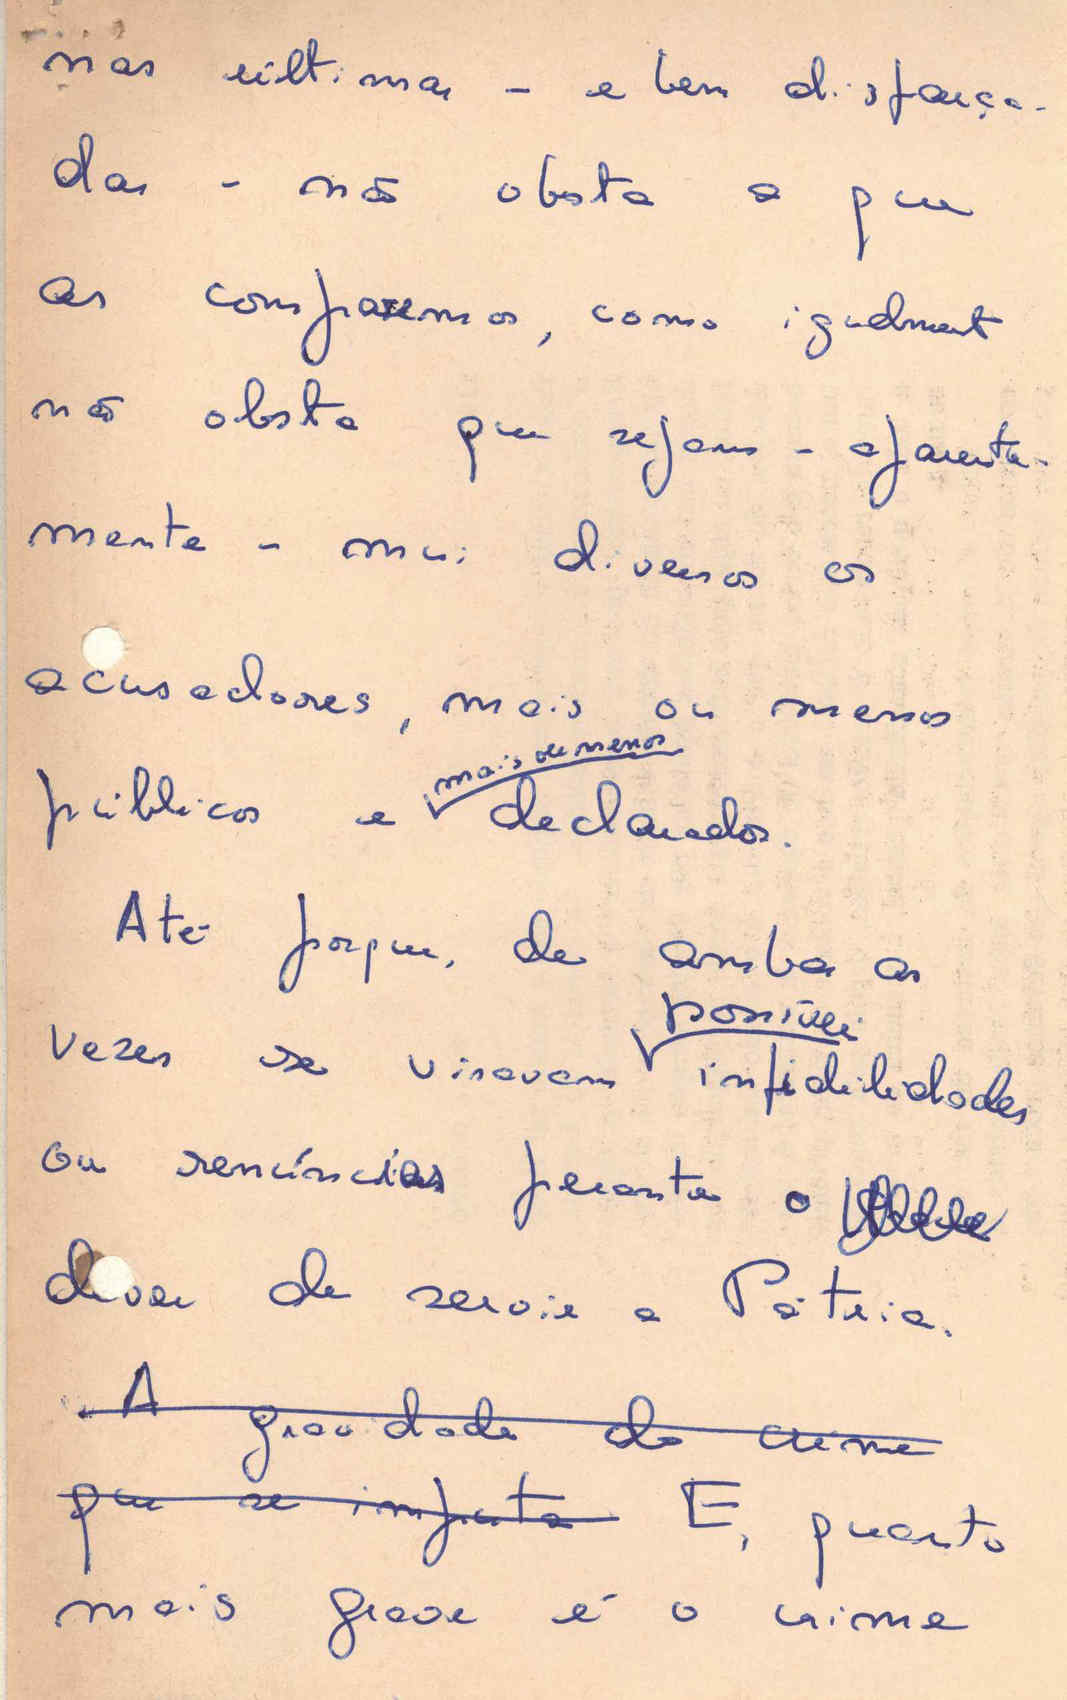 nas últimas - e bem disfarça-
das - não obsta a que
as comparemos, como igualment
não obsta que sejam - aparente-
mente - mui diversos os
acusadores, mais ou menos
mais ou menos
públicos e declarados.
Até porque, de ambas as
possíveis
vezes se visavam infidelidades
ou renúncias perante o
dever de servir a Pátria.
A gravidade do crime
que se imputa E, quanto
mais grave é o crime